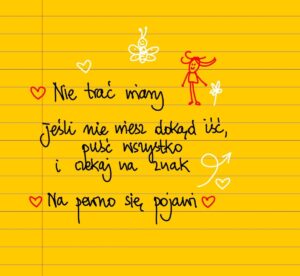 Nie trać wiary
Jeśli nie wiesz dokąd iść,
puść wszystko
i czekaj na znak
Na pewno się pojawi